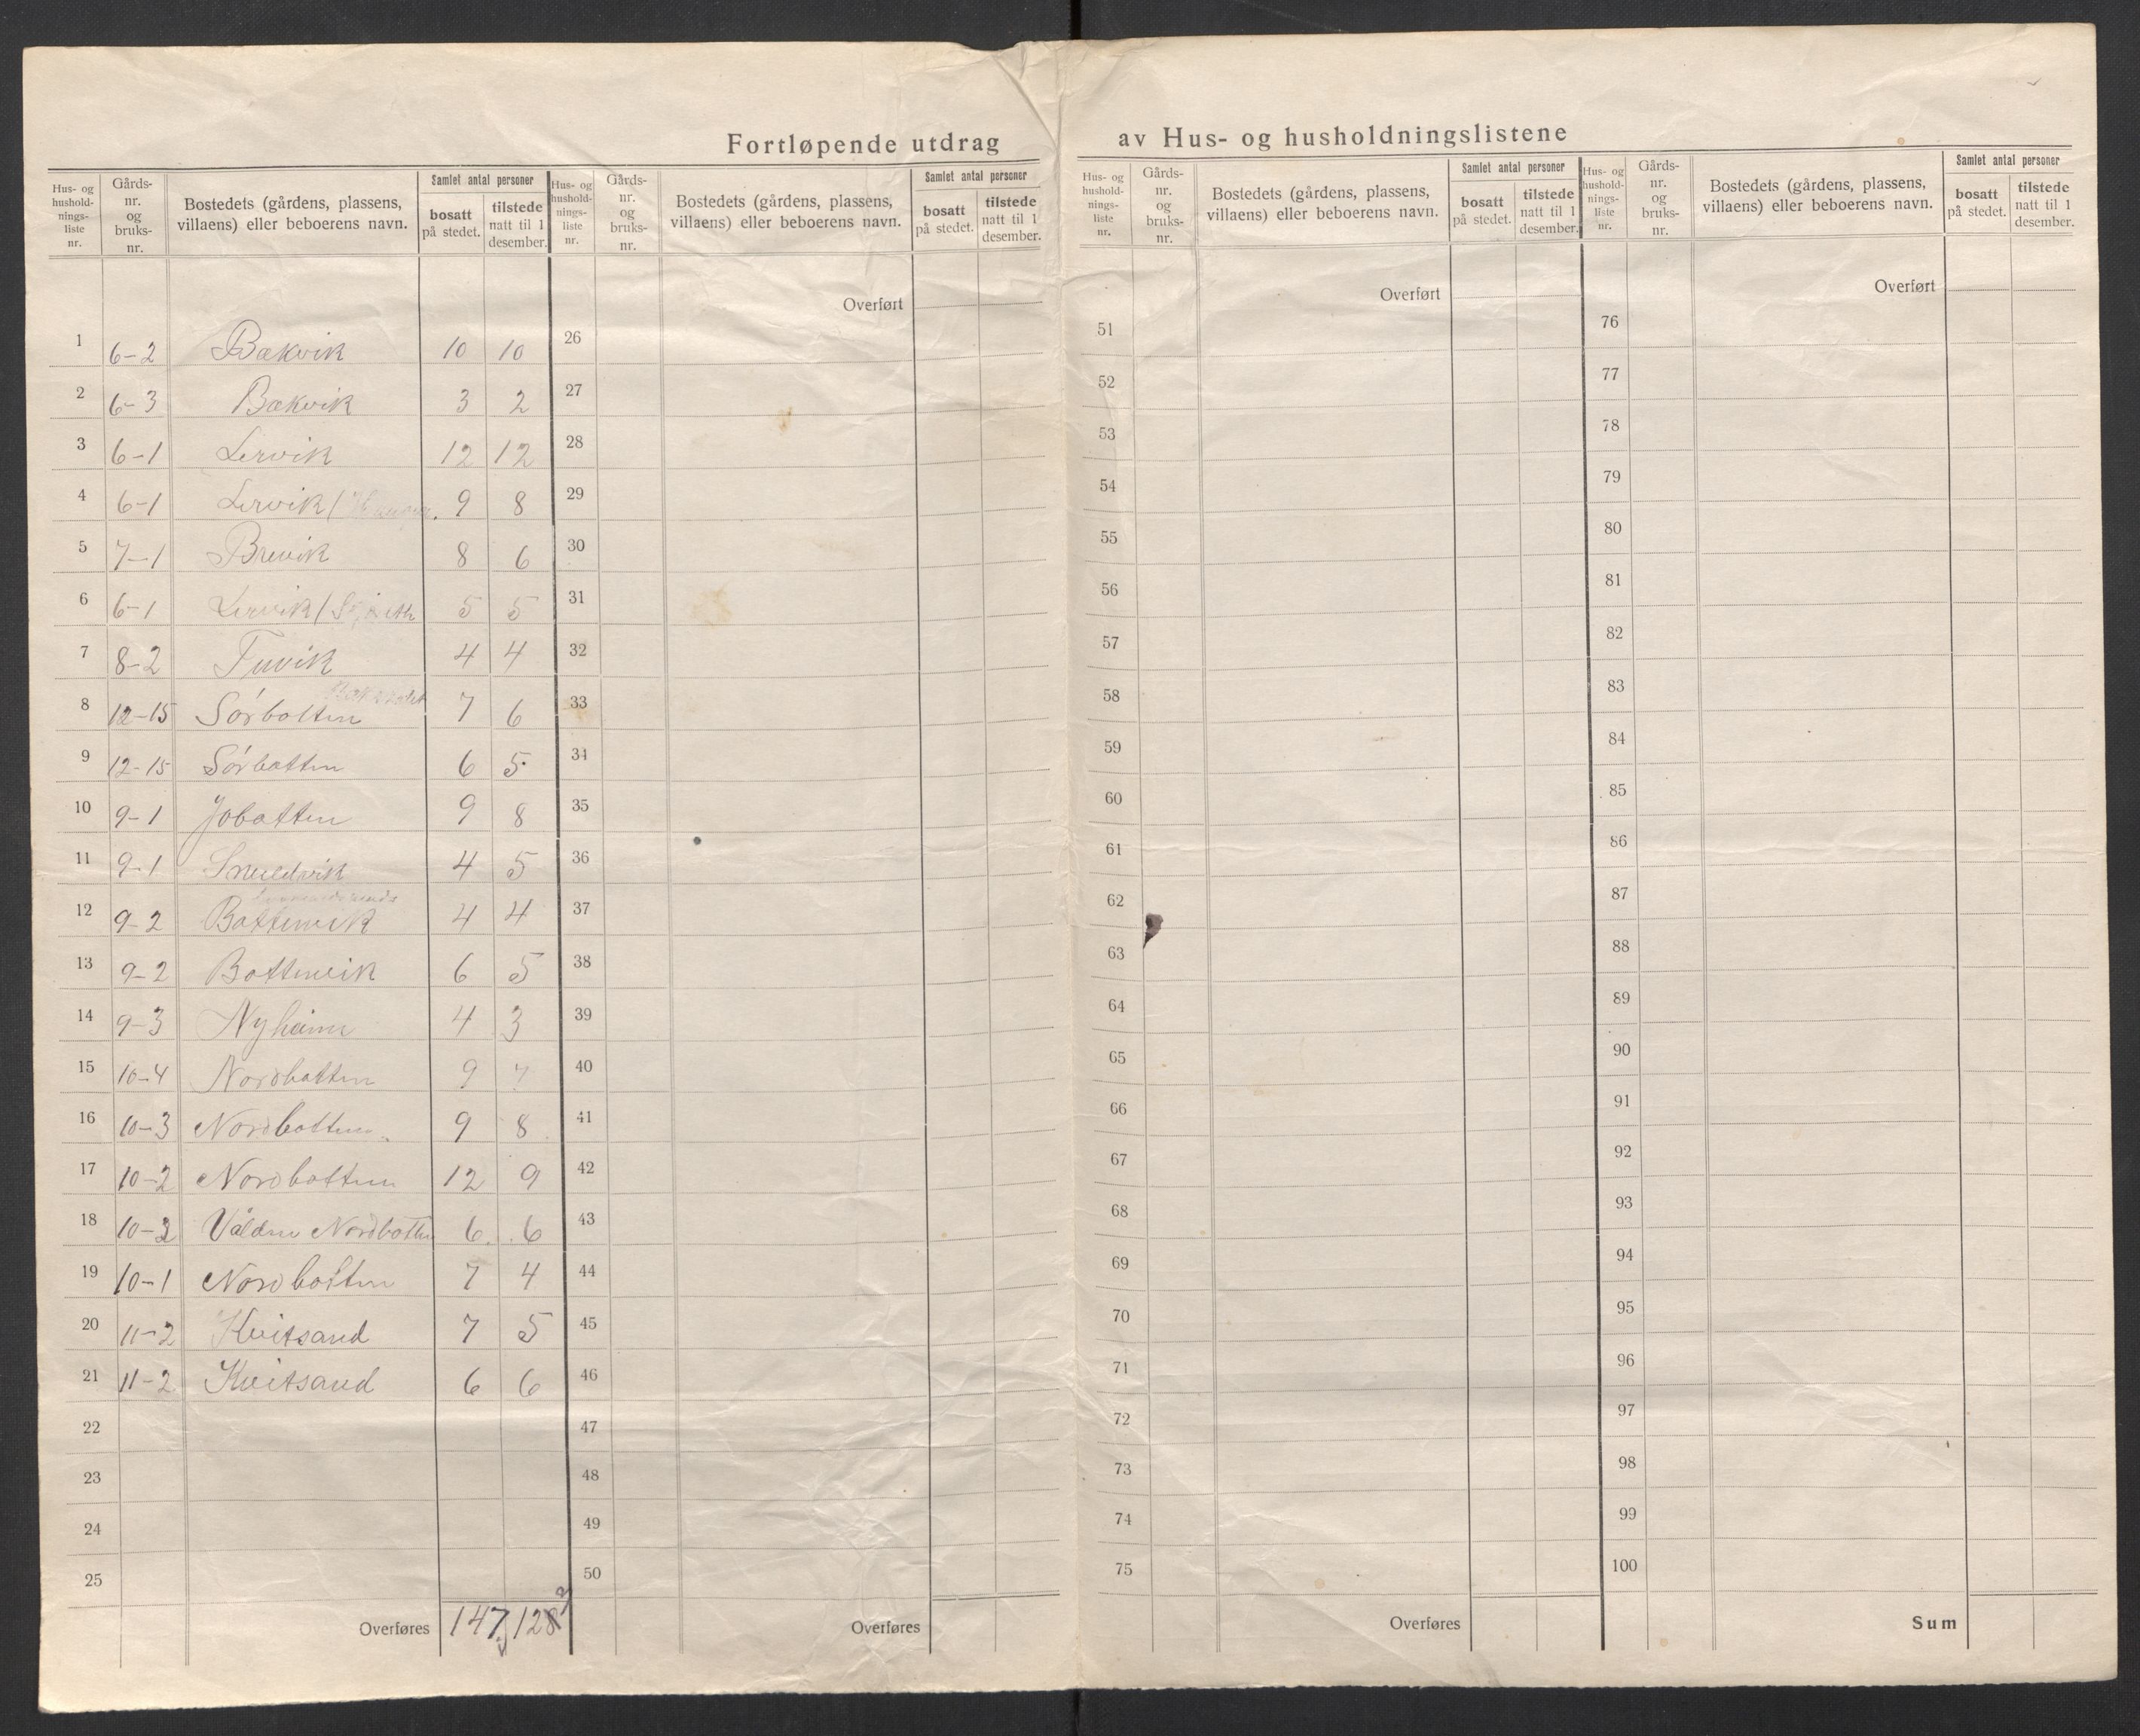 Fortløpende utdrag av Hus- og husholdningslistene
Hus- og hushold-nings-liste nr. | Gårds-nr. og bruks-nr. | Bostedets (gårdens, plassens, villaens) eller beboerens navn. | Samlet antal personer | bosatt på stedet. | tilstede natt til 1 desember.
1 6-2 Bakvik 10 10
2 6-3 Bakvik 3 2
3 6-1 Lervik 12 12
4 6-1 Lervik / 9 8
5 7-1 Brevik 8 6
6 6-1 Lervik / 5 5
7 8-2 Tuvik 4 4
8 12-15 Sørbotten 7 6
9 12-15 Sørbotten 6 5
10 9-1 Jobotten 9 8
11 9-1 4 5
12 9-2 Bottenvik 4 4
13 9-2 Bottenvik 6 5
14 9-3 Nyheim 4 3
15 10-4 Nordbotten 9 7
16 10-3 Nordbotten 9 8
17 10-2 Nordbotten 12 9
18 10-2 Nordbotten 6 6
19 10-1 Nordbotten 7 4
20 11-2 Kvitsand 7 5
21 11-2 Kvitsand 6 6
22
23
24
25
Overføres 147 128
Hus- og hushold-nings-liste nr. | Gårds-nr. og bruks-nr. | Bostedets (gårdens, plassens, villaens) eller beboerens navn. | Samlet antal personer | bosatt på stedet. | tilstede natt til 1 desember.
Overført
26
27
28
29
30
31
32
33
34
35
36
37
38
39
40
41
42
43
44
45
46
47
48
49
50
Overføres
Hus- og hushold-nings-liste nr. | Gårds-nr. og bruks-nr. | Bostedets (gårdens, plassens, villaens) eller beboerens navn. | Samlet antal personer | bosatt på stedet. | tilstede natt til 1 desember.
Overført
51
52
53
54
55
56
57
58
59
60
61
62
63
64
65
66
67
68
69
70
71
72
73
74
75
Overføres
Hus- og hushold-nings-liste nr. | Gårds-nr. og bruks-nr. | Bostedets (gårdens, plassens, villaens) eller beboerens navn. | Samlet antal personer | bosatt på stedet. | tilstede natt til 1 desember.
Overført
76
77
78
79
80
81
82
83
84
85
86
87
88
89
90
91
92
93
94
95
96
97
98
99
100
Sum